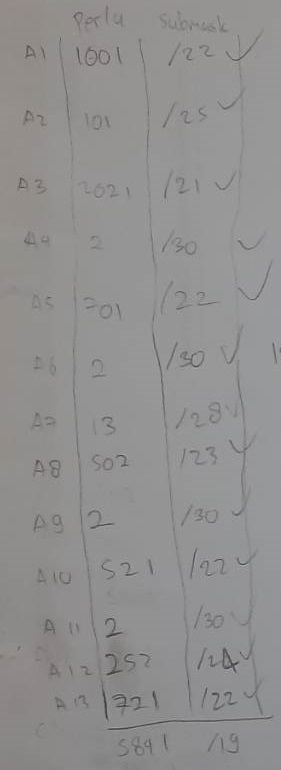 Perlu Submask
A1 1001 /22 ✓
A2 101 /25 ✓
A3 2021 /21 ✓
A4 2 /30 ✓
A5 701 /22 ✓
A6 2 /30 ✓
A7 13 /28 ✓
A8 502 /23 ✓
A9 2 /30 ✓
A10 521 /22 ✓
A11 2 /30 ✓
A12 252 /24 ✓
A13 721 /22 ✓
5841 /19